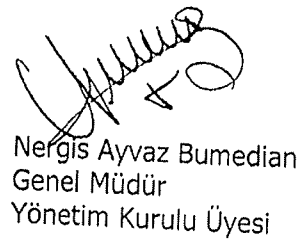 Nergis Ayvaz Bumedian
Genel Müdür
Yönetim Kurulu Üyesi